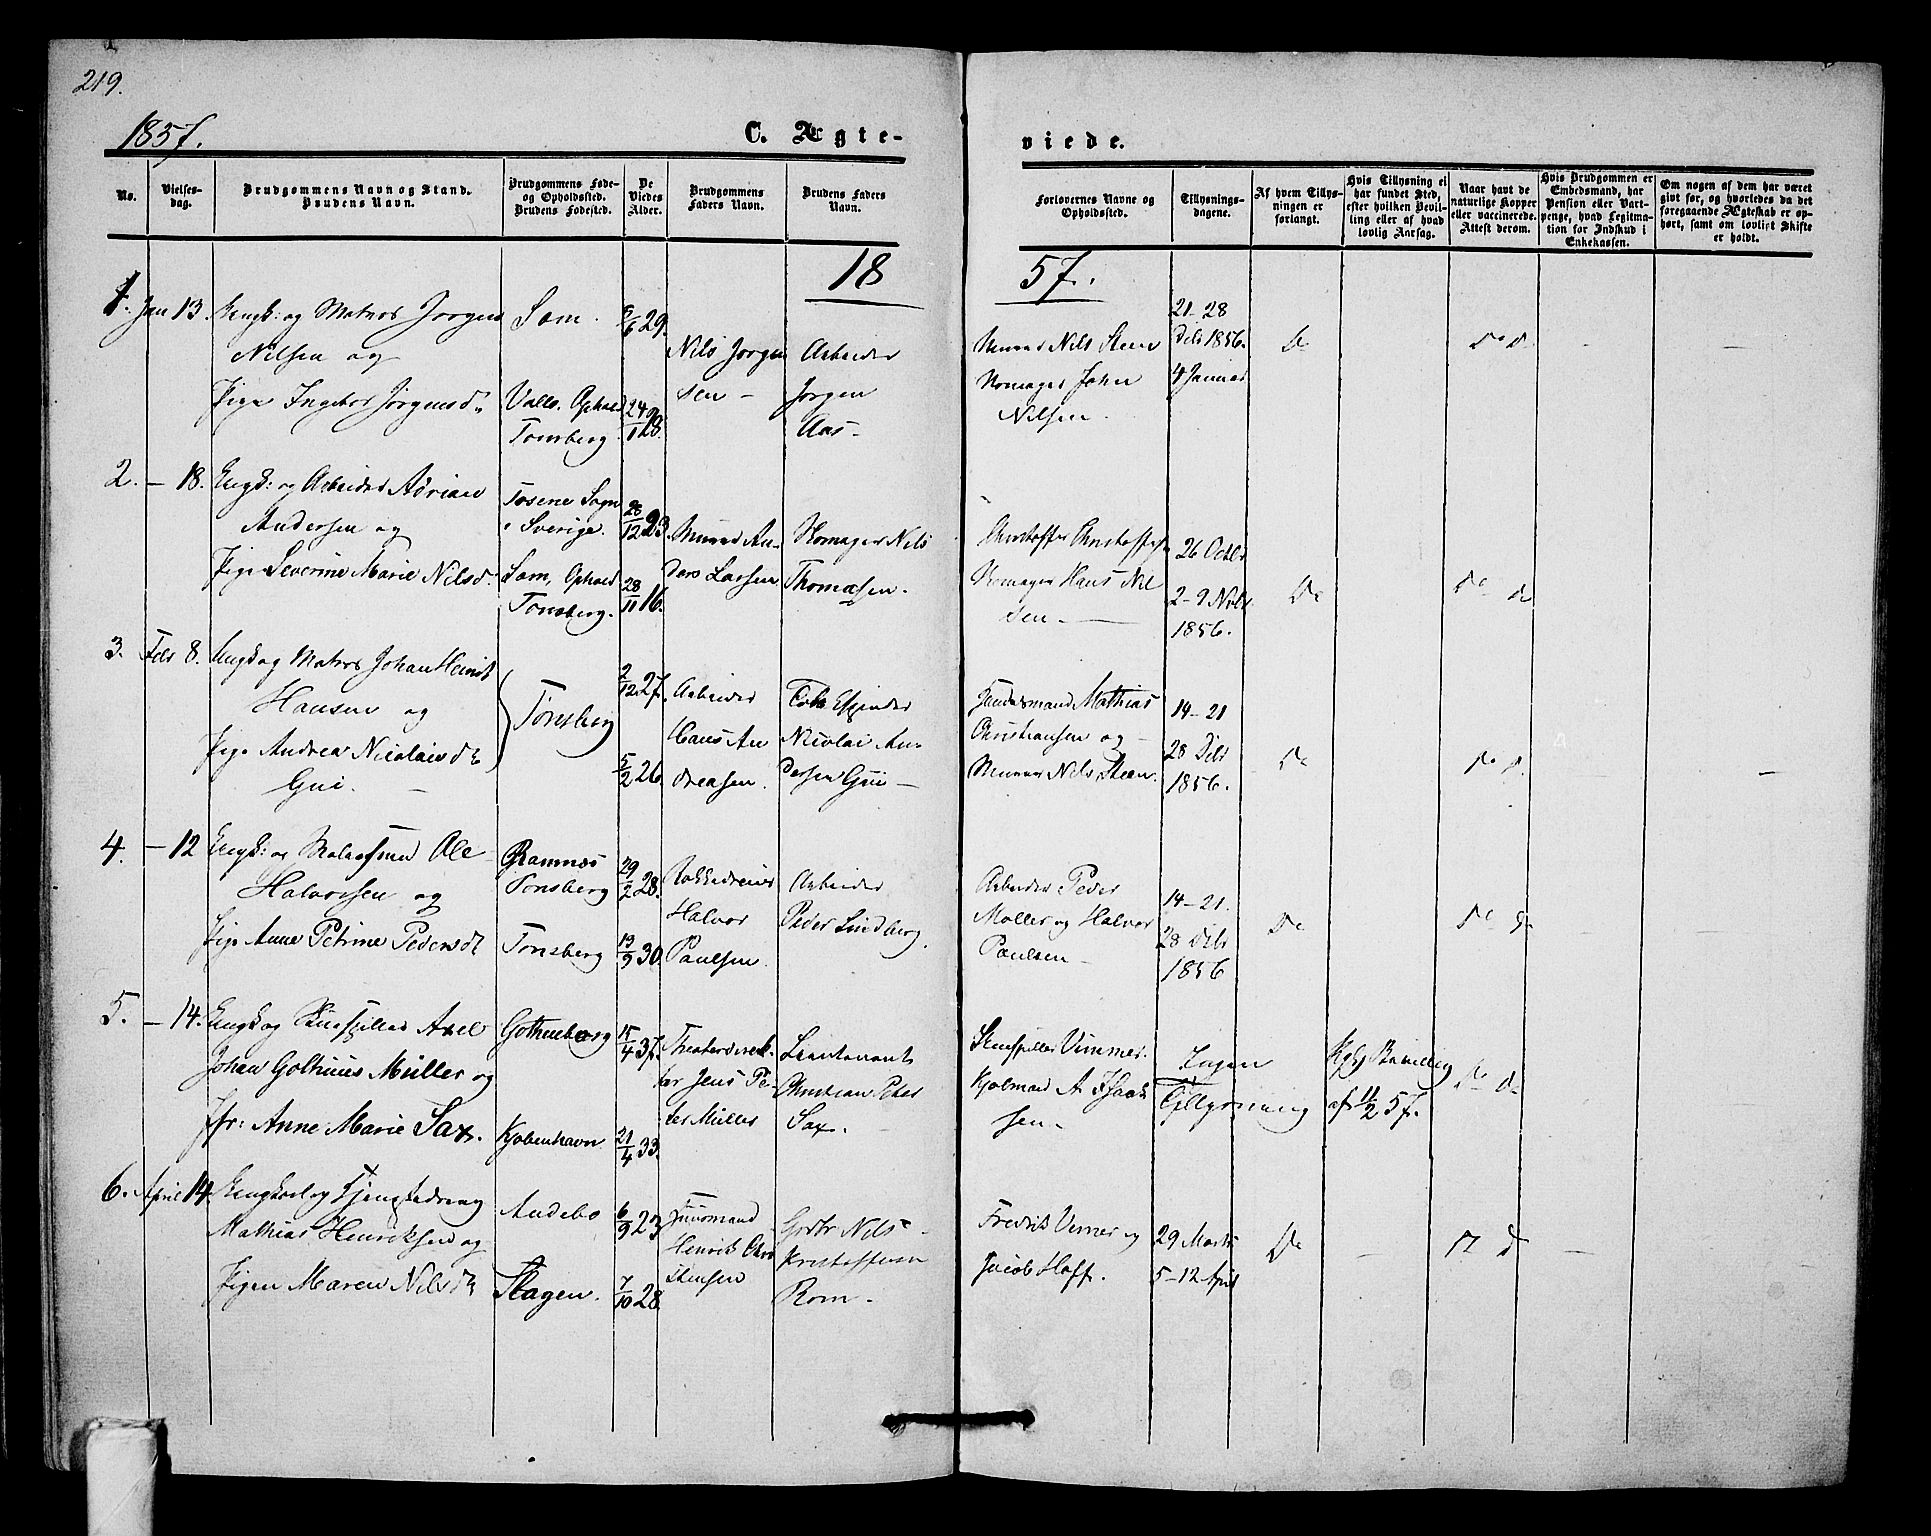 219.
1857.
C. Ægte-
viede.
No.
Vielses-
dag.
Brudgommens Navn og Stand.
Brudens Navn.
Brudgommens Føde-
og Opholdssted.
Brudens Fødested.
De
Viedes
Alder.
Brudgommens
Faders Navn.
Brudens Faders
Navn.
Forlovernes Navne og
Opholdssted.
Tillysnings-
dagene.
Af hvem Tillys-
ningen er
forlangt.
Hvis Tillysning ei
har fundet Sted,
efter hvilken Bevil-
ling eller af hvad
lovlig Aarsag.
Naar havt de
naturlige Kopper
eller vaccinerede.
Attest derom.
Hvis Brudgommen er
Embedsmand, har
Pension eller Vart-
penge, hvad Legitima-
tion for Indskud i
Enkekassen.
Om nogen af dem har været
givt før, og hvorledes da det
foregaaende Ægteskab er op-
hørt, samt om lovligt Skifte
er holdt.
18
57.
1. Jan 13. Ungk: og Matros Jorgen
Nilsen og
Pige Ingebor Jorgensd.
Sem.
Vallo. Ophold
Tonsberg.
29.
24/11 28.
Nils Jorgen
sen -
Arbeider
Jorgen
Aas -
Murer Nils Steen
Homager John
Nilsen.
21-28
Dcbr 1856.
4 Januar
Do
Do d.
2. - 18. Ungk: og Arbeider Adrian
Andersen og
Pige Severine Marie Nilsd
Tosene Sogn
i Sverige.
Sem, Ophold
Tonsberg.
28/12 23
28/11 16.
Murer An-
ders Larsen
Homager Nils
Thomasen.
Christoffer Christoffersen
Homager Hans Nil
sen -
26 Octbr
2-9 Novbr
1856.
Do
Do do
3. Febr 8. Ungk og Matros Johan Henrik
Hansen og
Pige Andrea Nicolaisdtr
Gui. -
Tonsberg
2/12 27.
5/2 26.
Arbeider
Hans An
dreasen.
Nicolai An-
dersen Gui -
Mathias
Christiansen og -
Murer Nils Steen.
14-21
28 Dcbr
1856.
Do
Do d.
4. - 12 Ungk: og Ole
Halvorsen og
Pige Anne Petrine Pedersdtr
Ramnes
Tonsberg
Tonsberg
29/2 28.
13/9 30.
Rokkedreier
Halvor
Paulsen.
Arbeider
Peder Lindberg.
Arbeider Peder
Moller og Halvor
Paulsen -
14-21.
28 Dcbr
1856
Do
Do do
5. - 14. Ungk og Skuespiller Axel
Johan Gothius Müller og
Jfr: Anne Marie Sax.
Gothenborg
Kjobenhavn
15/4 37.
21/4 33.
Theaterdirek-
tor Jens Pe-
ter Müller
Lieutenant
Christian Peter
Sax.
Skuespiller Vimmer.
Kjobmand A Isaak
sen -
Ingen
Tillysning
Kgl Bevilling
af 11/2 57.
Do do
6. April 14. Ungkarl og Tjenestedreng
Mathias Henriksen og
Pigen Maren Nilsdtr
Andebo
Slagen.
6/9 23
7/10 28
Huusmand
Henrik Chri
stensen
Grdbr Nils -
Kristoffersen
Rom -
Fredrik Verner og
Jacob Hoff.
29 Marts
5-12 April
Do
D d